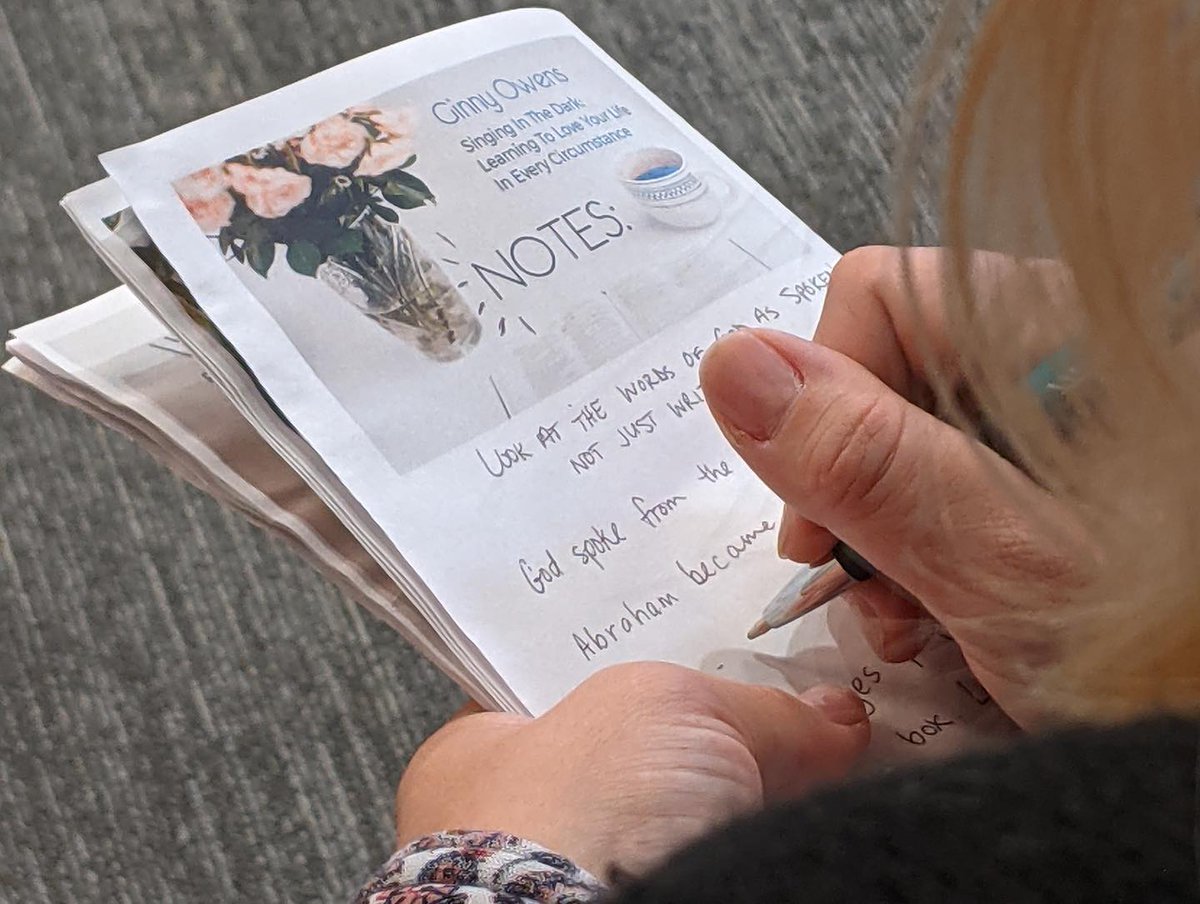 Ginny Owens
Singing In The Dark:
Learning To Love Your Life
In Every Circumstance
NOTES:
LOOK AT THE WORDS OF GOD AS SPOKEN
NOT JUST
God spoke from the
Abraham became
bok